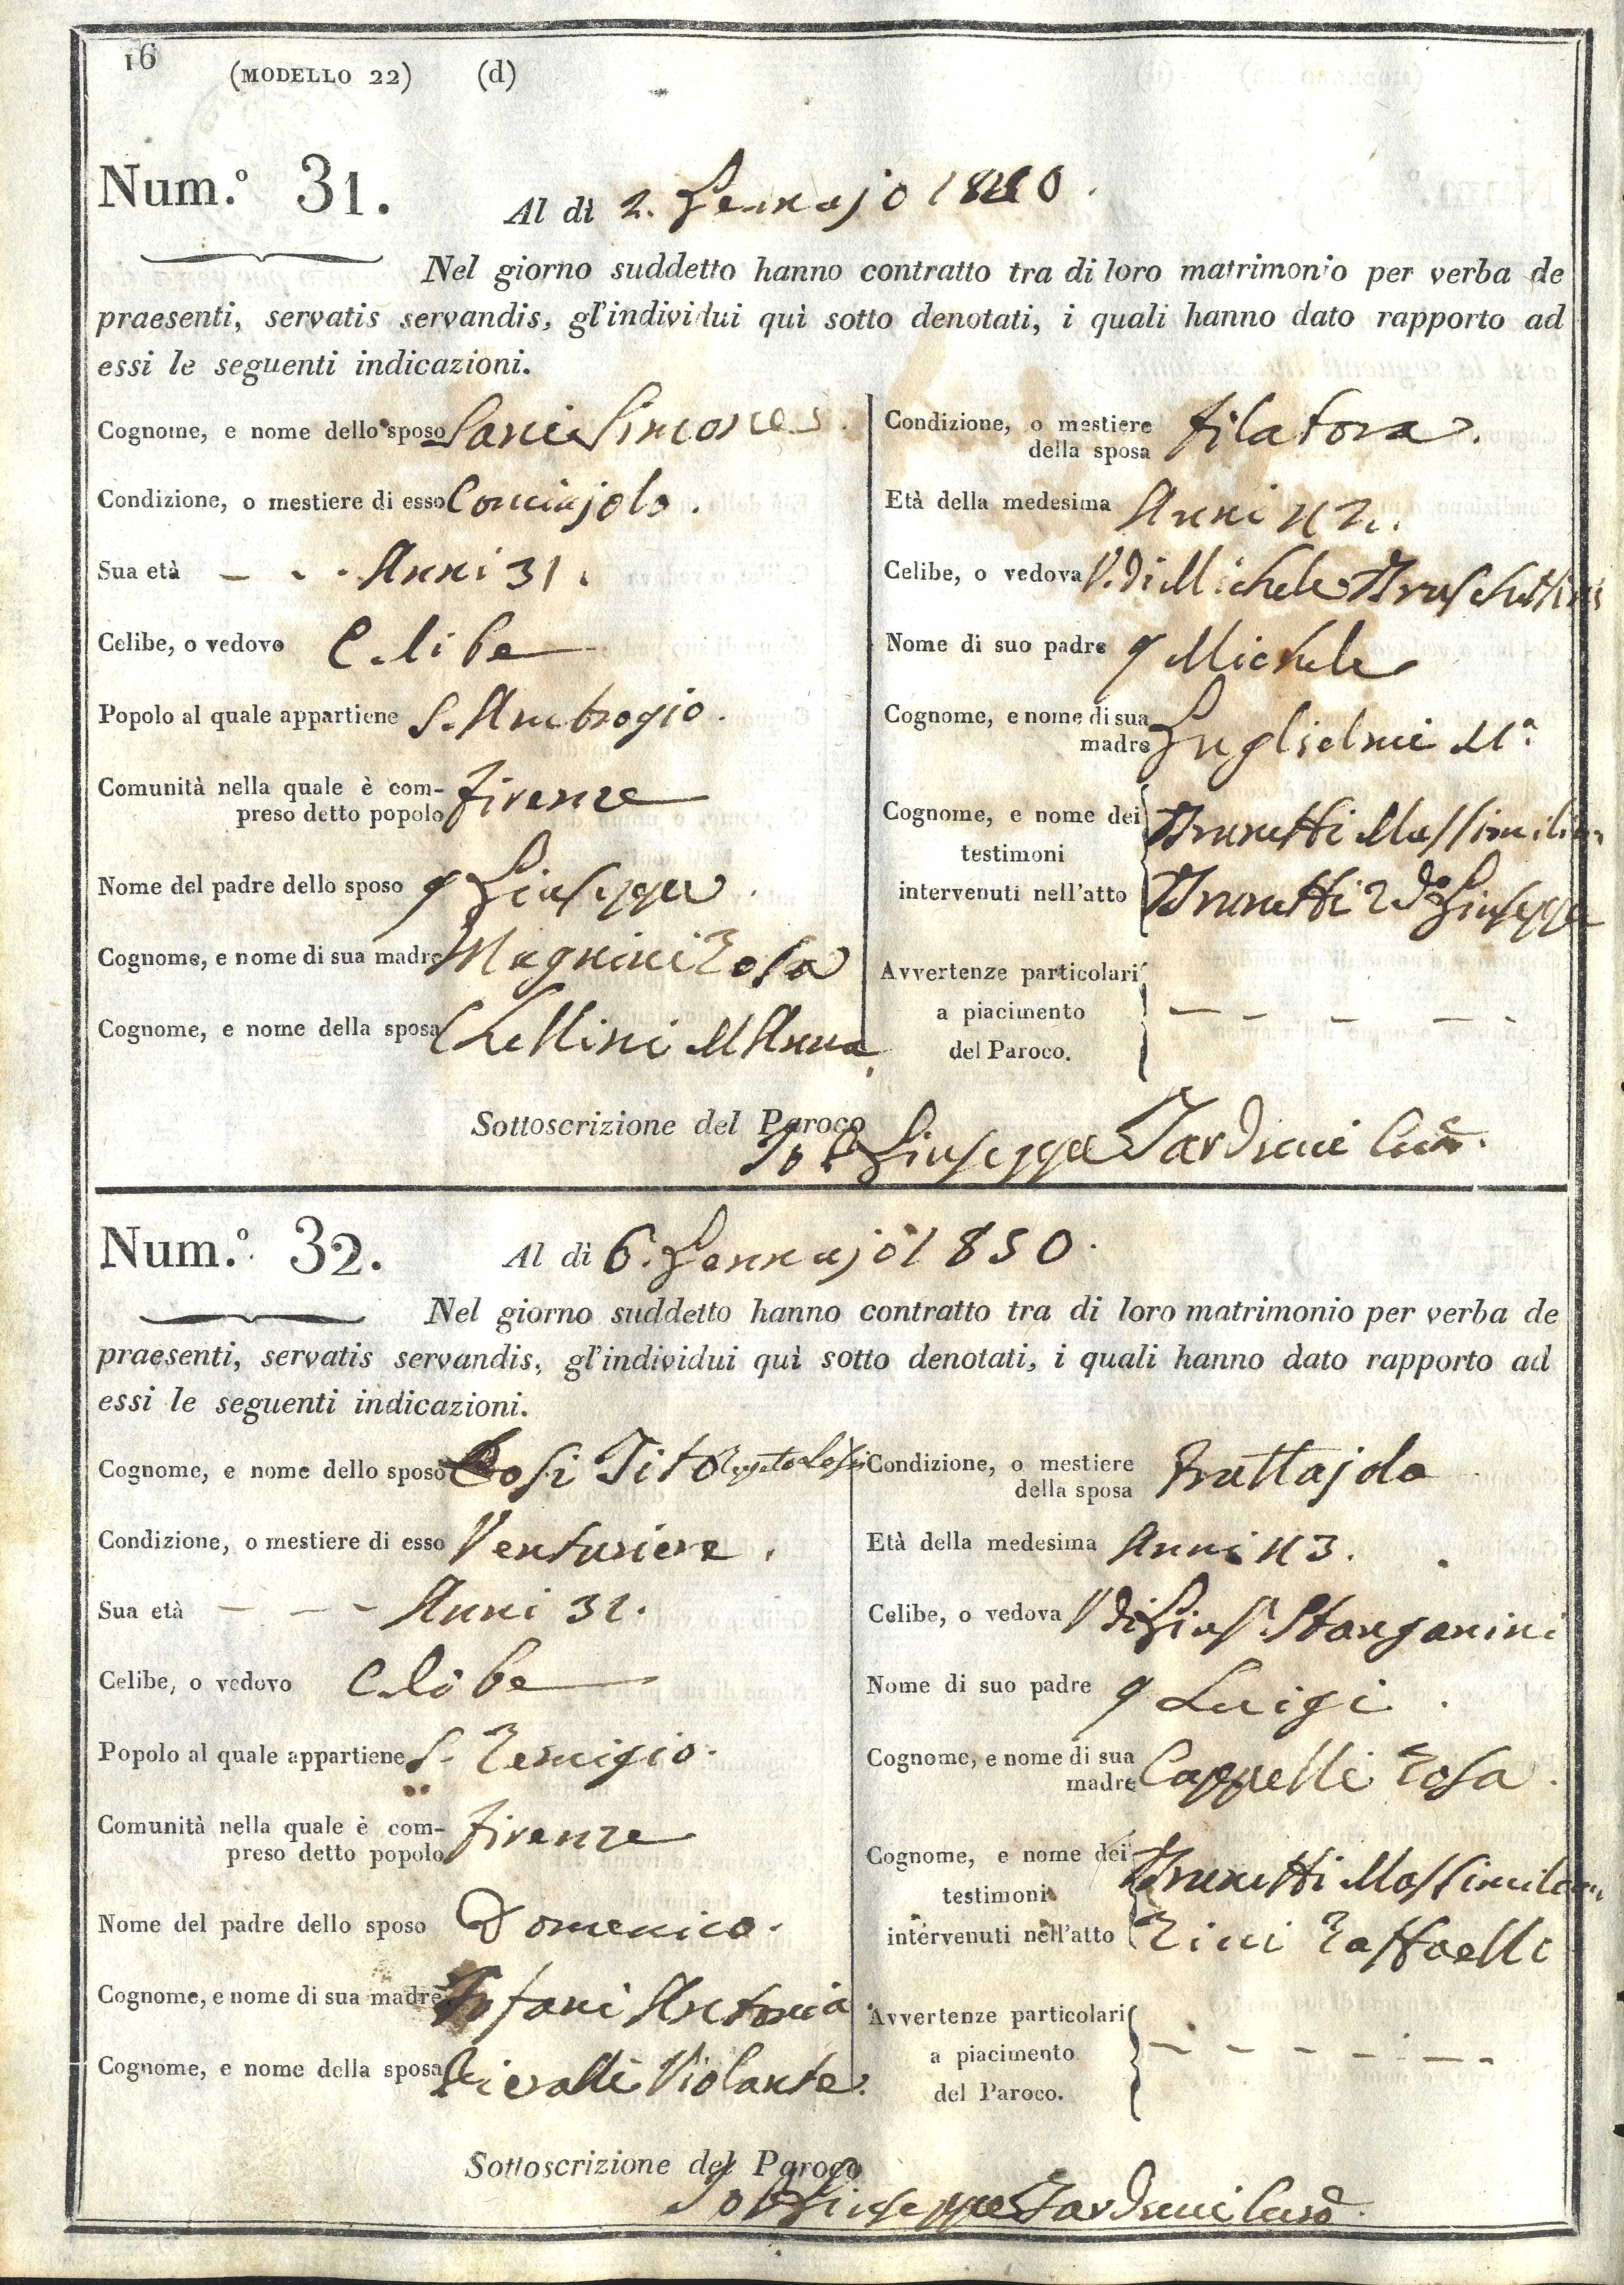 16
(MODELLO 22) (d)
Num.° 31.
Al dì 2. Gennajo 18
Nel giorno suddetto hanno contratto tra di loro matrimonio per verba de
praesenti, servatis servandis, gl'individui quì sotto denotati, i quali hanno dato rapporto ad
essi le seguenti indicazioni.
Cognome, e nome dello sposo Simone
Condizione, o mestiere di esso Conciajolo.
Sua età - - - Anni 31.
Celibe, o vedovo Celibe
Popolo al quale appartiene S. Ambrogio.
Comunità nella quale è com-
preso detto popolo Firenze
Nome del padre dello sposo q Giuseppe
Cognome, e nome di sua madre Magnini Rosa
Cognome, e nome della sposa Chellini M Anna
Condizione, o mestiere
della sposa filatora.
Età della medesima Anni 42.
Celibe, o vedova V. di Michele
Nome di suo padre q Michele
Cognome, e nome di sua
madre Guglielmi Mª
Cognome, e nome dei Brunetti Massimilian
testimoni
intervenuti nell'atto Brunetti Rdo Giuseppe
Avvertenze particolari
a piacimento - - - - -
del Paroco.
Sottoscrizione del Paroco
Io P Giuseppe Tarducci Curo.
Num.° 32.
Al dì 6. Gennajo 1850.
Nel giorno suddetto hanno contratto tra di loro matrimonio per verba de
praesenti, servatis servandis, gl'individui quì sotto denotati, i quali hanno dato rapporto ad
essi le seguenti indicazioni.
Cognome, e nome dello sposo Tito
Condizione, o mestiere di esso Venturiere.
Sua età - - - Anni 32.
Celibe, o vedovo Celibe
Popolo al quale appartiene S. Remigio.
Comunità nella quale è com-
preso detto popolo Firenze
Nome del padre dello sposo Domenico.
Cognome, e nome di sua madre Tofani Antonia
Cognome, e nome della sposa Violante.
Condizione, o mestiere
della sposa Fruttajola
Età della medesima Anni 43.
Celibe, o vedova V di Gius. Stanganini
Nome di suo padre q Luigi.
Cognome, e nome di sua
madre Cappelli Rosa.
Cognome, e nome dei Brunetti Massimilian
testimoni
intervenuti nell'atto Raffaello
Avvertenze particolari
a piacimento - - - - -
del Paroco.
Sottoscrizione del Paroco
Io P Giuseppe Tarducci Curo.